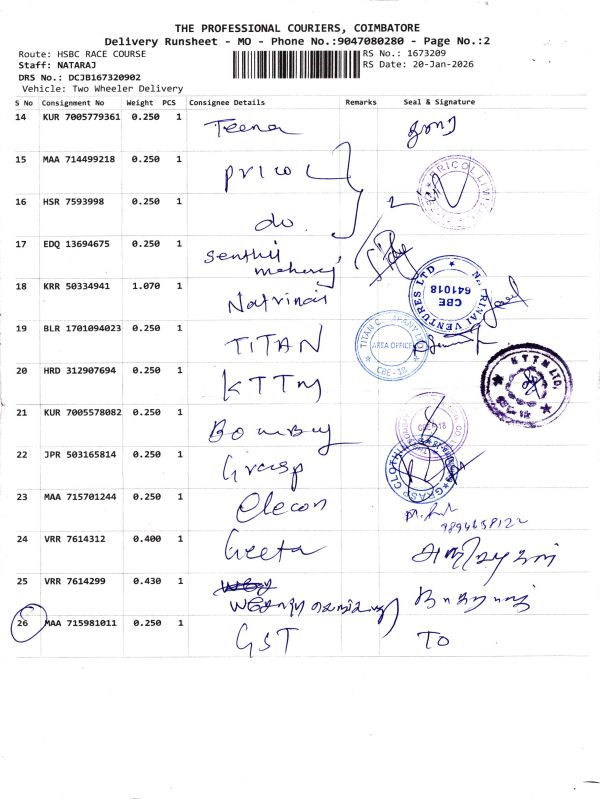 THE PROFESSIONAL COURIERS, COIMBATORE
Delivery Runsheet - MO - Phone No.:9047080280 - Page No.:2
Route: HSBC RACE COURSE
RS No.: 1673209
Staff: NATARAJ
RS Date: 20-Jan-2026
DRS No.: DCJB167320902
Vehicle: Two Wheeler Delivery
S No Consignment No Weight PCS Consignee Details Remarks Seal & Signature
14 KUR 7005779361 0.250 1 Teena
15 MAA 714499218 0.250 1 Pricol
PRICOL LIMITED
16 HSR 7593998 0.250 1 do
17 EDQ 13694675 0.250 1 Senthil
18 KRR 50334941 1.070 1 Natrinai
NATRINAI VENTURES LTD CBE 641018
19 BLR 1701094023 0.250 1 TITAN
TITAN COMPANY LTD AREA OFFICE CBE-18
20 HRD 312907694 0.250 1 KTTM
K T T M LTD.
21 KUR 7005578082 0.250 1 Bombay
22 JPR 503165814 0.250 1 Grasp
GRASP CLOTHING
23 MAA 715701244 0.250 1 Elecon
9894658122
24 VRR 7614312 0.400 1 Geeta
25 VRR 7614299 0.430 1
26 MAA 715981011 0.250 1 GST TO